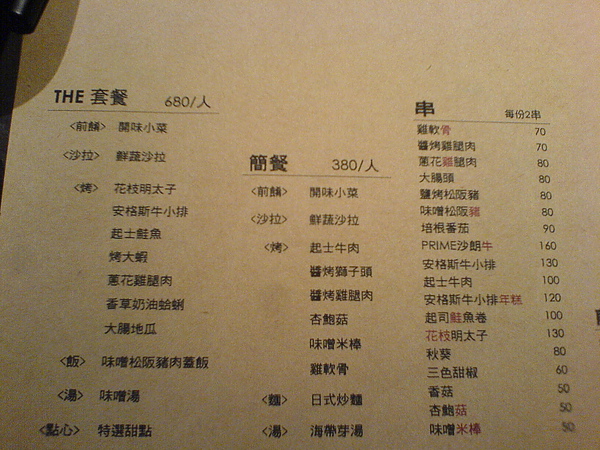 THE 套餐 680/人
〈前餚〉 開味小菜
〈沙拉〉 鮮蔬沙拉
〈烤〉 花枝明太子
安格斯牛小排
起士鮭魚
烤大蝦
蔥花雞腿肉
香草奶油蛤蜊
大腸地瓜
〈飯〉 味噌松阪豬肉蓋飯
〈湯〉 味噌湯
〈點心〉 特選甜點
簡餐 380/人
〈前餚〉 開味小菜
〈沙拉〉 鮮蔬沙拉
〈烤〉 起士牛肉
醬烤獅子頭
醬烤雞腿肉
杏鮑菇
味噌米棒
雞軟骨
〈麵〉 日式炒麵
〈湯〉 海帶芽湯
串 每份2串
雞軟骨 70
醬烤雞腿肉 70
蔥花雞腿肉 80
大腸頭 80
鹽烤松阪豬 80
味噌松阪豬 80
培根番茄 90
PRIME沙朗牛 160
安格斯牛小排 130
起士牛肉 100
安格斯牛小排年糕 120
起司鮭魚卷 100
花枝明太子 130
秋葵 80
三色甜椒 60
香菇 50
杏鮑菇 50
味噌米棒 50